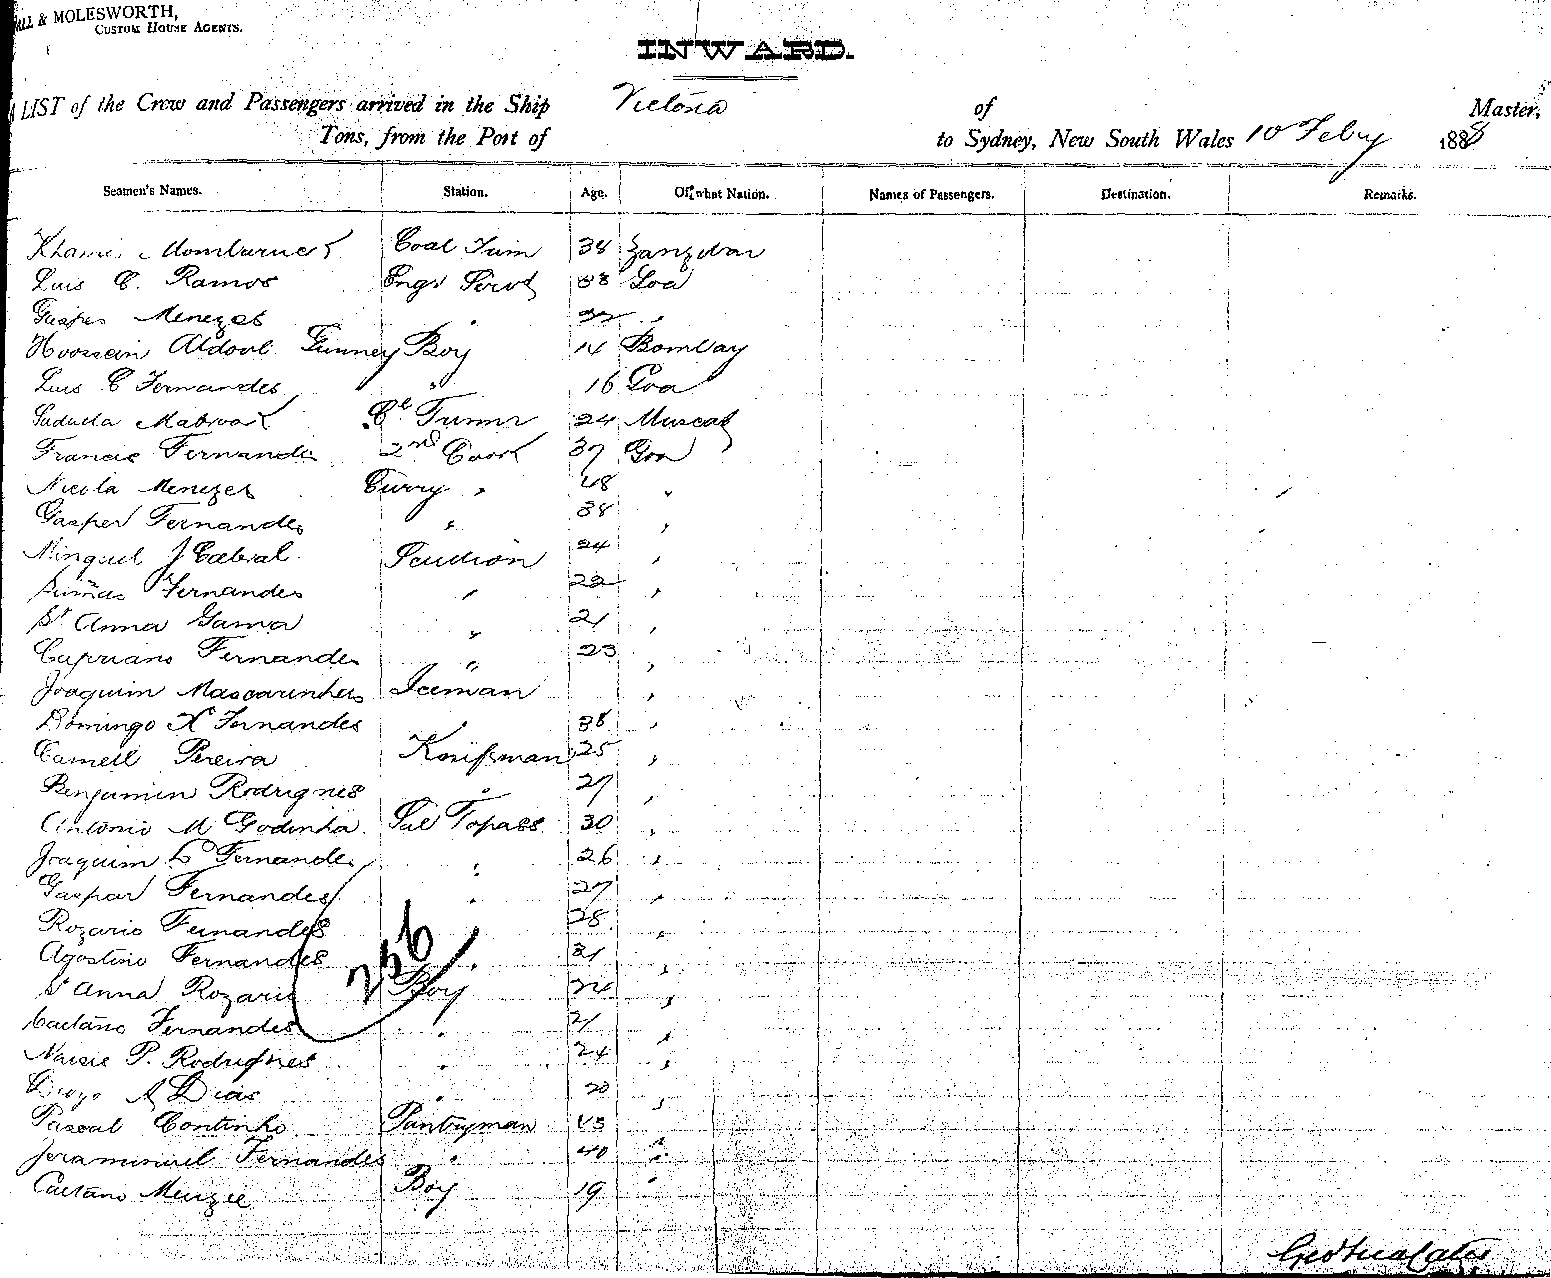 & MOLESWORTH,
CUSTOM HOUSE AGENTS.
INWARD.
LIST of the Crew and Passengers arrived in the Ship Victoria of Master,
Tons, from the Port of to Sydney, New South Wales 10 Feby 1888
Seamen's Names. Station. Age. Of what Nation. Names of Passengers. Destination. Remarks.
Coal Trim 38 Zanzibar
Luis C. Ramos Engr Servt 38 Goa
Menezes "
Hoossein Abdool Boy 14 Bombay
Luis C Fernandes " 16 Goa
Mabrook Cl Trimr 24 Muscat
Francis Fernandes 2nd Cook 37 Goa
Nicola Menezes Curry " 48 "
Gasper Fernandes " 38 "
Minguel J Cabral 24 "
Fernandes " 22 "
St Anna Gama " 21 "
Cypriano Fernandes " 23 "
Joaquim Mascarinhas Iceman "
Domingo X Fernandes " 38 "
Camell Pereira Knifsman 25 "
Benjamin Rodrignes " 27 "
Antonio M Godinha Sal Topass 30 "
Joaquim Fernandes " 26 "
Gaspar Fernandes " 27 "
Rozario Fernandes " 28 "
Agostino Fernandes " 31 "
St Anna Rozario Boy 24 "
256
Caetano Fernandes " 21 "
P. Rodrignes " 24 "
Dias " 20 "
Pascal Continho Pantryman 43 "
Fernandes " 40 "
Caetano Menzie Boy 19 "